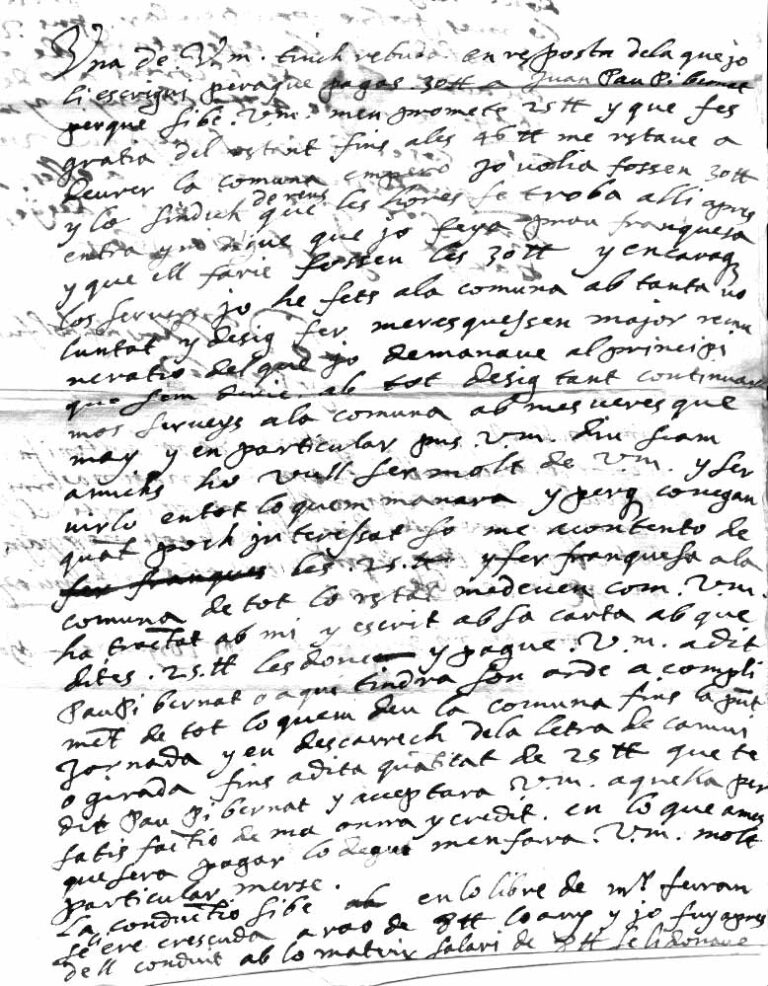 Una de V.m. tinch rebuda en resposta dela que jo
li escrigui peraque pagas 30 ll a Juan Pau Pi bernat
perque sibe V.m. men promete 25 ll y que fes
gratia del restant fins ales 46 ll me restave a
deurer la comuna empero jo volia fossen 30 ll
y lo sindich de reus que les hores se troba alli apres
entra y digue que jo feya prou franquesa
y que ell farie fossen les 30 ll y encaraq
los serveys jo he fets ala comuna ab tanta vo
luntat y desig fer meresquessen major remu
neratio del que jo demanave al principi
que sem devie ab tot desig tant continuar
mos serveys ala comuna ab mes veres que
may y en particular pus V.m. diu siam
amichs ho vull ser molt de V.m. y ser
virlo entot lo quem manara y perq conegan
quāt poch interessat so me acontento de
les 25 ll y fer franquesa ala
comuna de tot lo restāt medeven com V.m.
ha tractat ab mi y escrit ab sa carta ab que
dites 25 ll les done y pague V.m. adit
Pau Pi bernat o a qui tindra son orde a compli
mēt de tot lo quem deu la comuna fins la pñt
jornada y en descarrech dela letra de cambi
o girada fins adita quātitat de 25 ll que te
dit Pau Pi bernat y acceptara V.m. aquella per
satisfactio de ma onra y credit en lo que ames
que sera pagar lo degut men fara V.m. molt
particular merse.
La conductio sibe en lo libre de mr ferran
se ere crescuda a rao de 8 ll lo any y jo fuy apres
dell conduit ab lo mateix salari de 8 ll se li donave